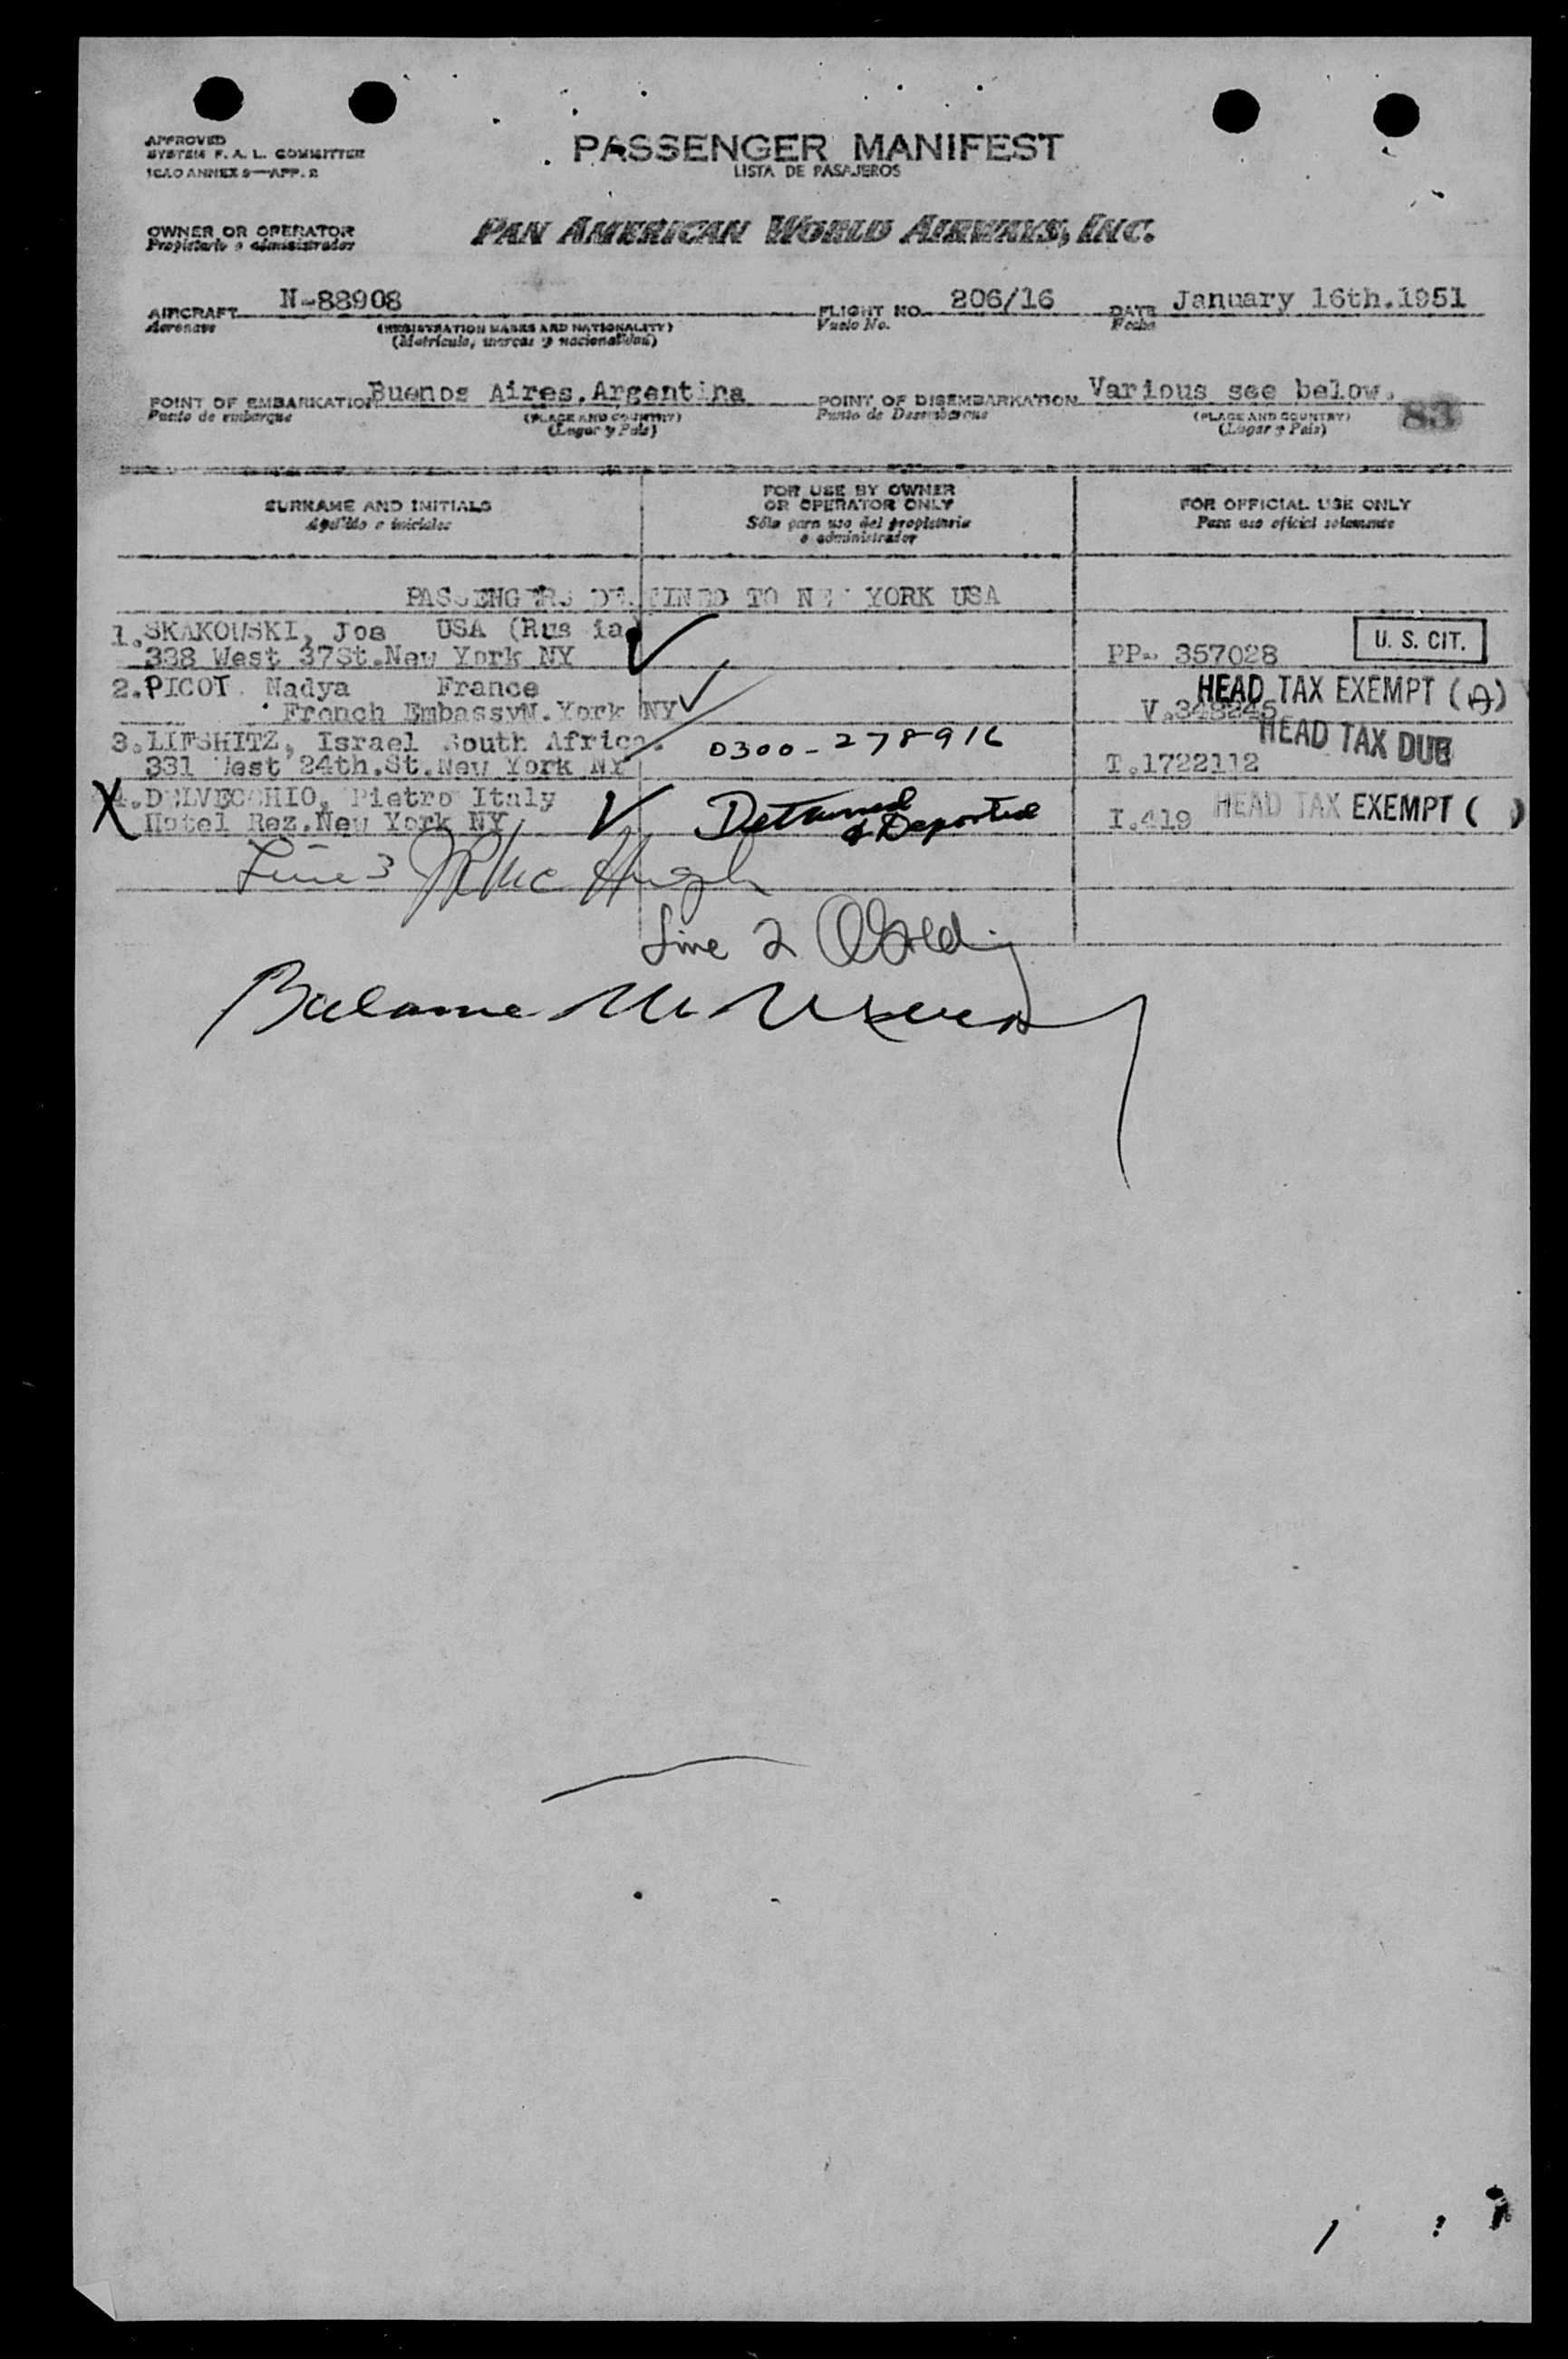 APPROVED
SYSTEM F. A. L. COMMITTEE
ICAO ANNEX 9—APP. 2
PASSENGER MANIFEST
LISTA DE PASAJEROS
OWNER OR OPERATOR
Propietario o administrador
PAN AMERICAN WORLD AIRWAYS, INC.
AIRCRAFT N-88908 FLIGHT NO. 206/16 DATE January 16th.1951
Aeronave (REGISTRATION MARKS AND NATIONALITY) Vuelo No. Fecha
(Matrícula, marcas y nacionalidad)
POINT OF EMBARKATION Buenos Aires.Argentina POINT OF DISEMBARKATION Various see below.
Punto de embarque (PLACE AND COUNTRY) Punto de Desembarque (PLACE AND COUNTRY) 83
(Lugar y País) (Lugar y País)
SURNAME AND INITIALS
Apellido e iniciales
FOR USE BY OWNER
OR OPERATOR ONLY
Sólo para uso del propietario
o administrador
FOR OFFICIAL USE ONLY
Para uso oficial solamente
PASSENGERS DESTINED TO NEW YORK USA
1.SKAKOWSKI, Jos USA (Russia)
338 West 37St.New York NY PP- 357028 U. S. CIT.
2.PICOT Nadya France HEAD TAX EXEMPT (A)
French EmbassyN.York NY V.348245
3.LIFSHITZ, Israel South Africa. 0300-278916 HEAD TAX DUE
331 West 24th.St.New York NY T.1722112
X 4.DELVECCHIO, Pietro Italy Detained
Hotel Rez.New York NY & Deported I.419 HEAD TAX EXEMPT ( )
Line 3 Mc Hugh
Line 2
Balance